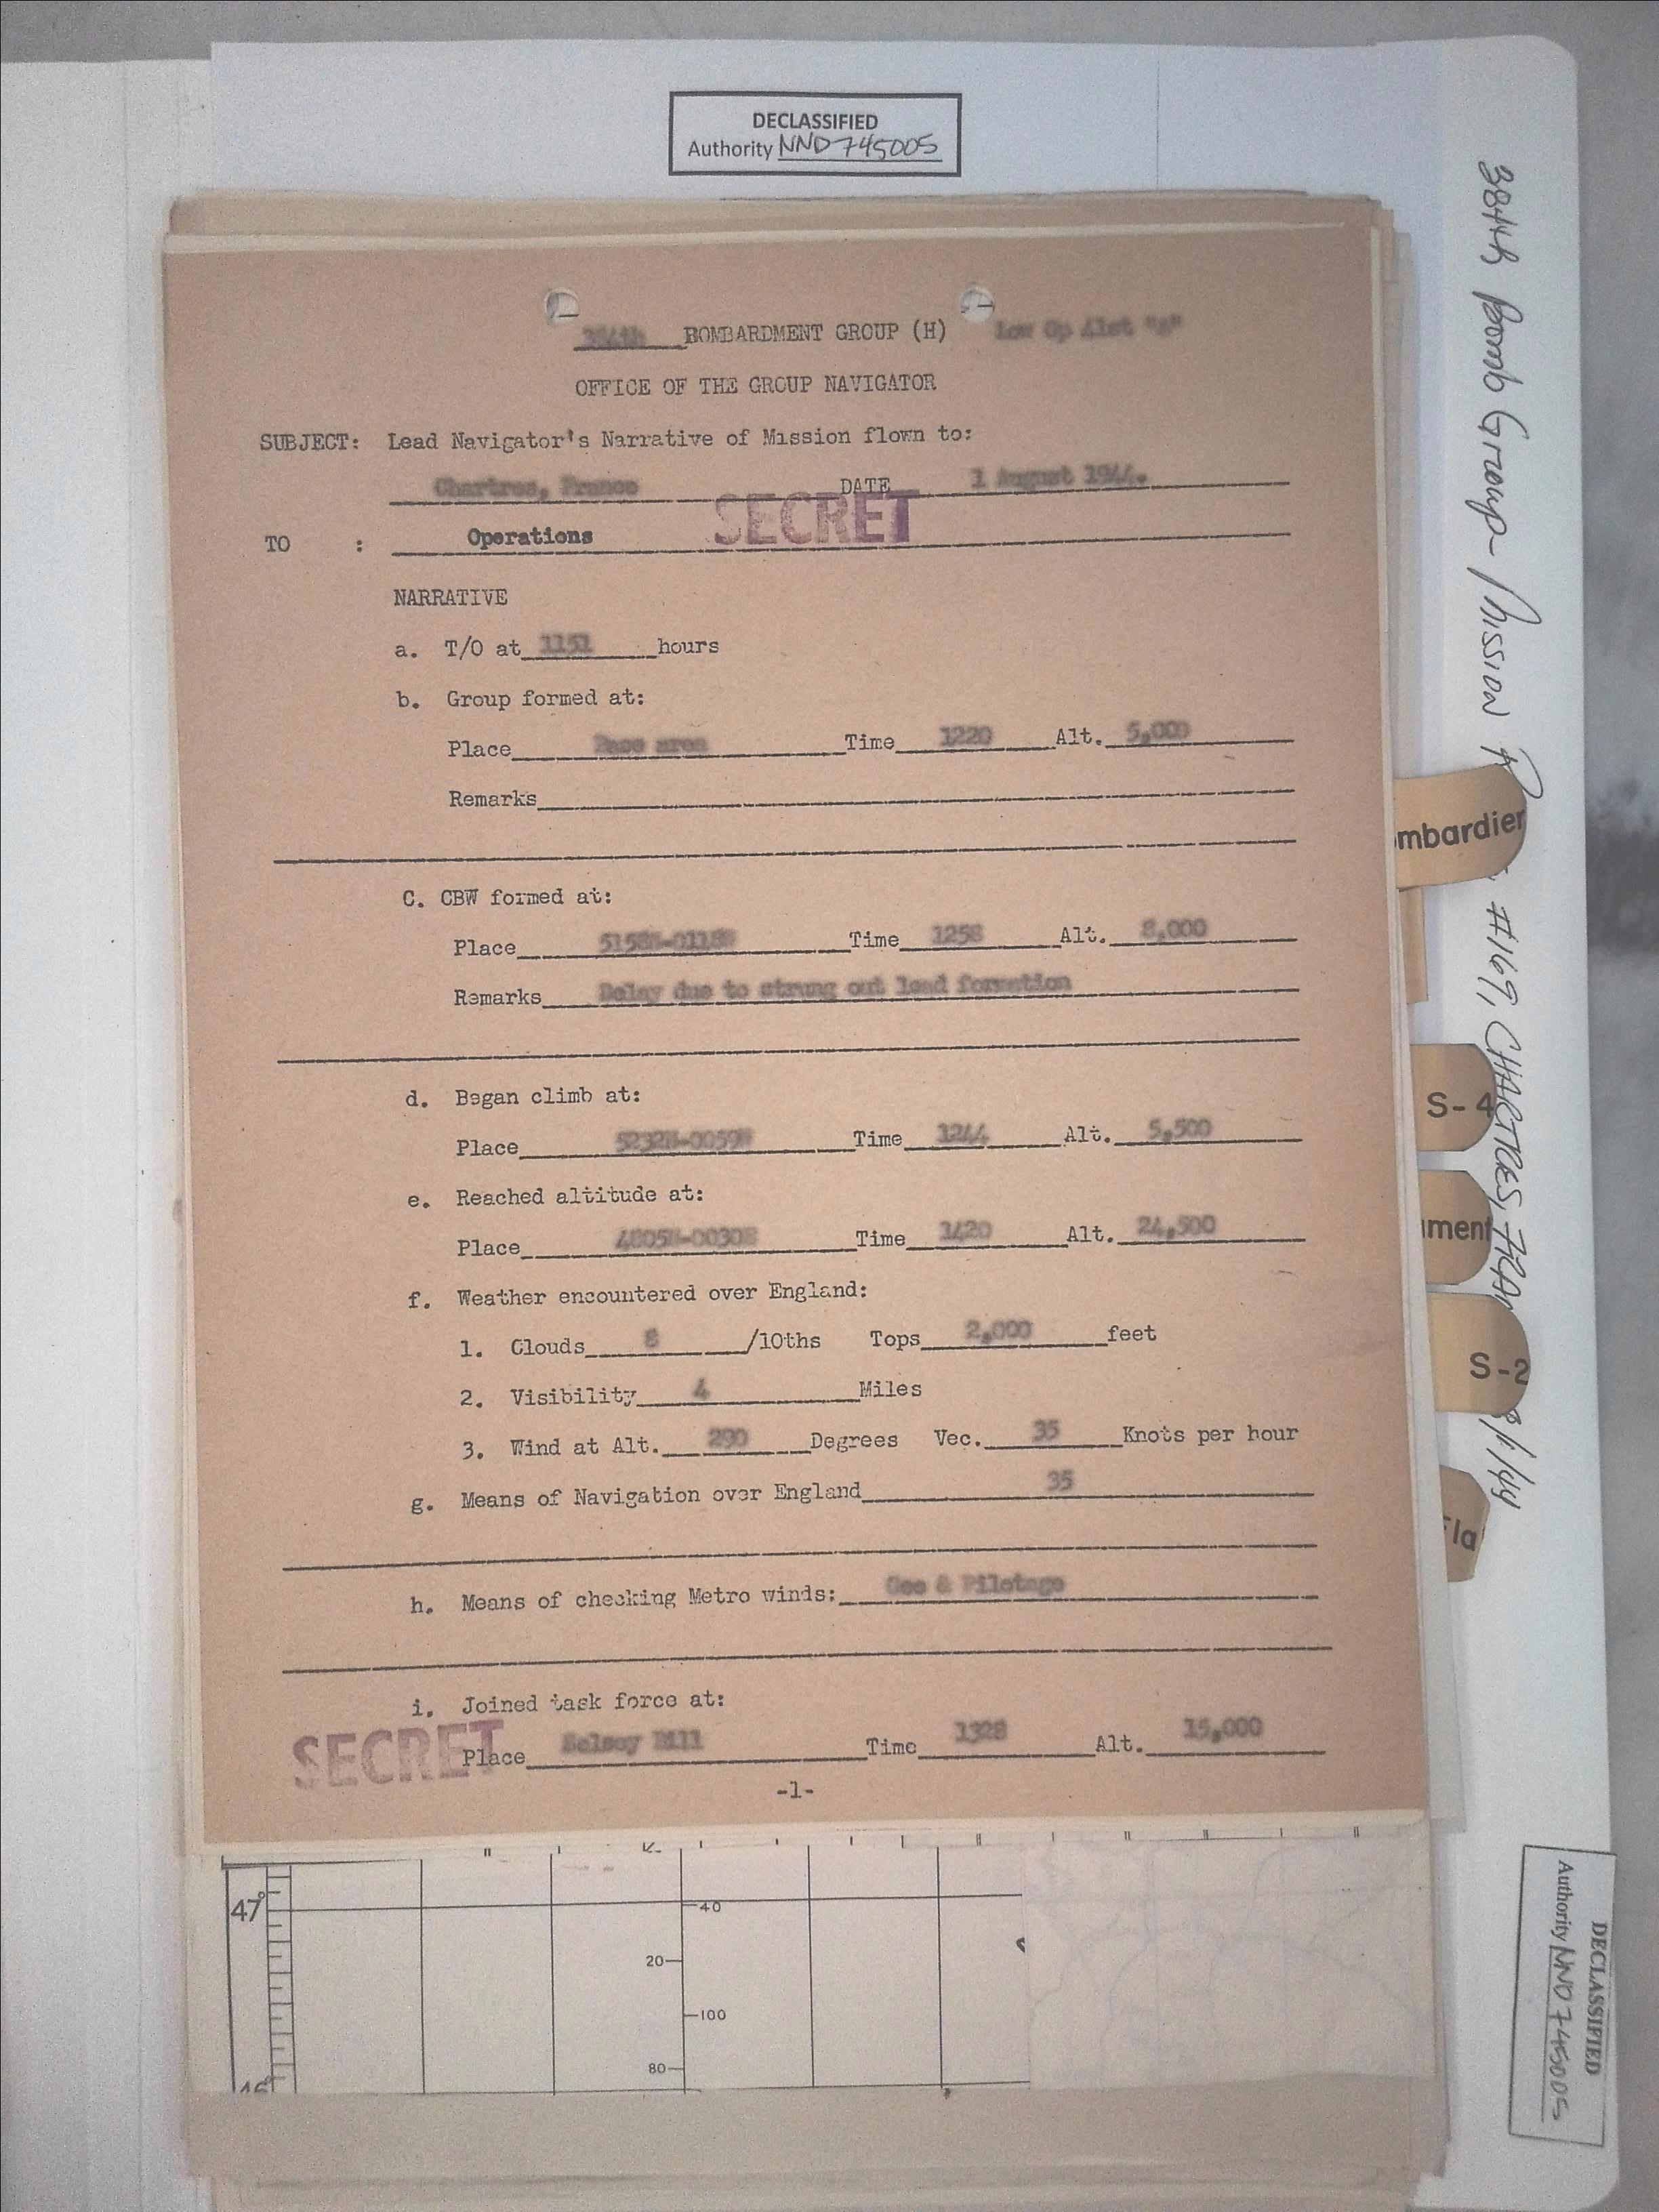 DECLASSIFIED
Authority NND 745005
384th BOMBARDMENT GROUP (H) Low Gp 41st "A"
OFFICE OF THE GROUP NAVIGATOR
SUBJECT: Lead Navigator's Narrative of Mission flown to:
Chartres, France DATE 1 August 1944.
SECRET
TO : Operations
NARRATIVE
a. T/O at 1151 hours
b. Group formed at:
Place Base area Time 1220 Alt. 5,000
Remarks
C. CBW formed at:
Place Time 1258 Alt. 8,000
Remarks Delay due to strung out lead formation
d. Began climb at:
Place Time 1244 Alt. 5,500
e. Reached altitude at:
Place Time 1420 Alt. 24,500
f. Weather encountered over England:
1. Clouds 8 /10ths Tops 2,000 feet
2. Visibility 4 Miles
3. Wind at Alt. 290 Degrees Vec. 35 Knots per hour
g. Means of Navigation over England 35
h. Means of checking Metro winds: Gee & Pilotage
i. Joined task force at:
SECRET
Place Selsey Bill Time 1328 Alt. 15,000
-1-
47°
40
20
100
80
46°
384th Bomb Group - Mission #169, CHARTRES, 8/1/44
mbardier
S-4
ment
S-2
Fla
DECLASSIFIED
Authority NND 745005